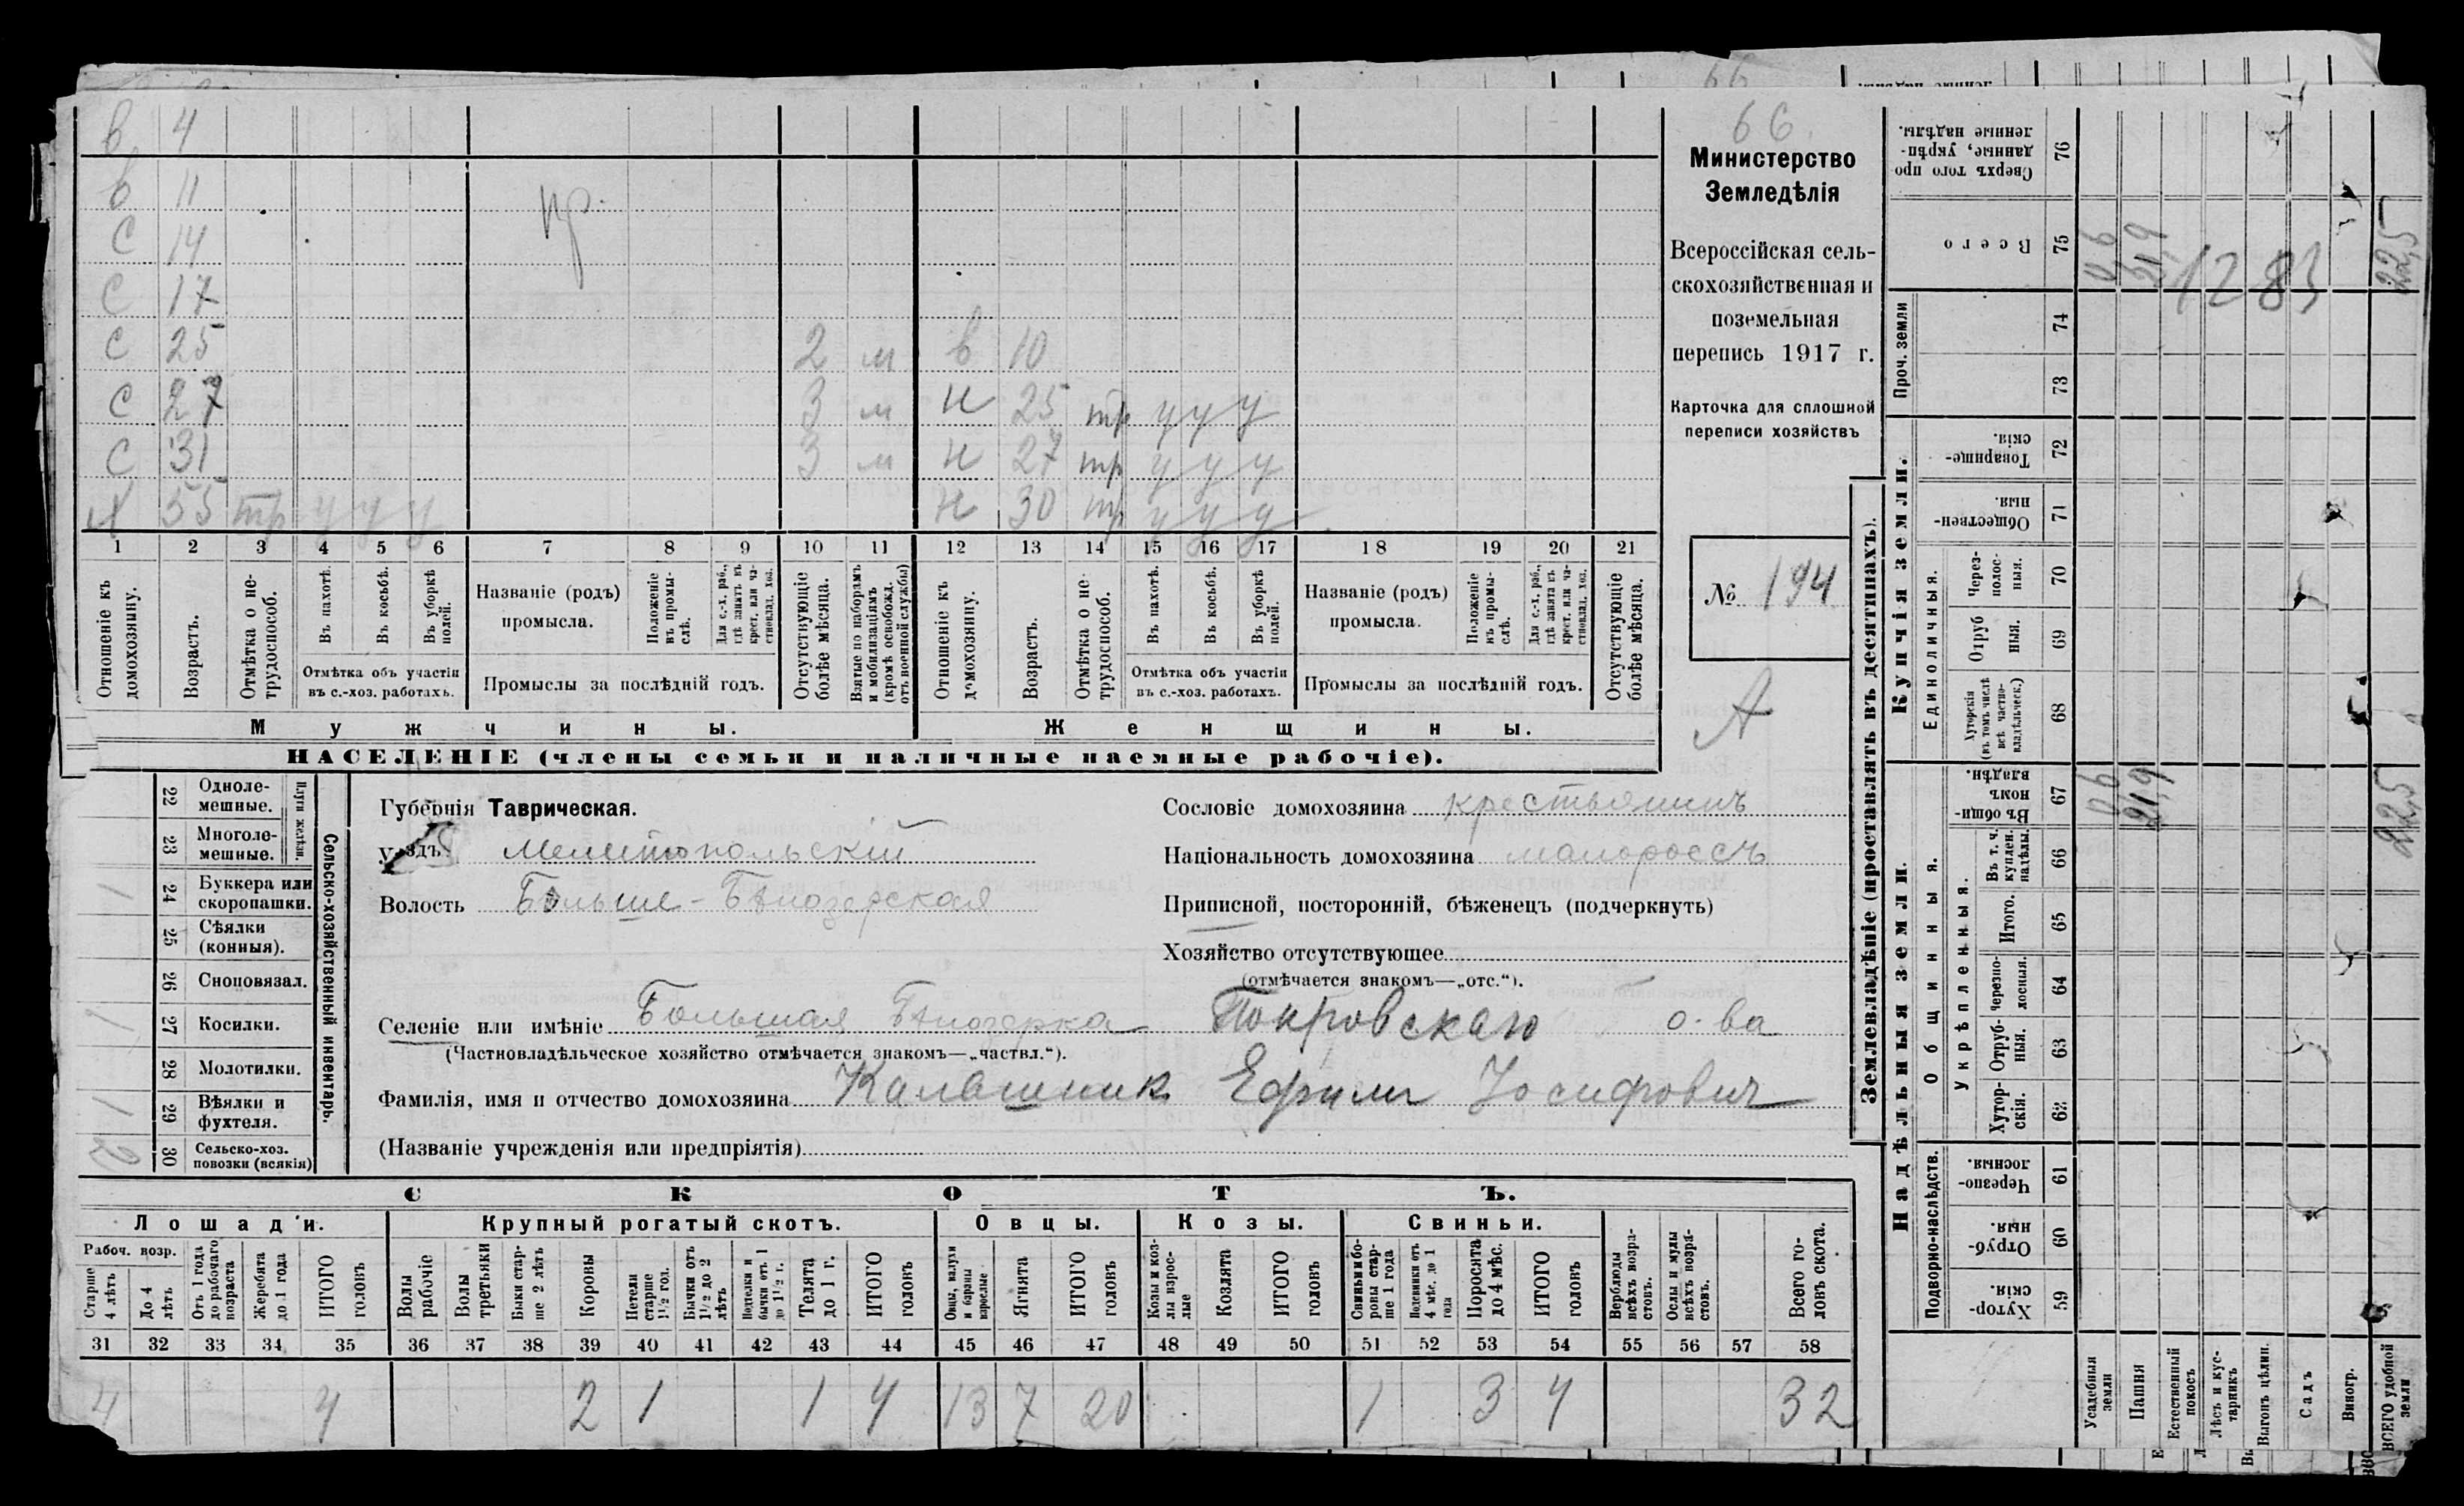 66.
Министерство
Земледѣлія
Всероссійская сель-
скохозяйственная и
поземельная
перепись 1917 г.
Карточка для сплошной
переписи хозяйствъ
№ 194
А
в 4
в 11 пр.
с 14
с 17
с 25 2 м в 10
с 27 3 м н 25 тр у у у
с 31 3 м н 27 тр у у у
х 55 тр у у у н 30 тр у у у
1 2 3 4 5 6 7 8 9 10 11 12 13 14 15 16 17 18 19 20 21
Отношеніе къ домохозяину.
Возрастъ.
Отмѣтка о не-трудоспособ.
Въ пахотѣ.
Въ косьбѣ.
Въ уборкѣ полей.
Отмѣтка объ участіи
въ с.-хоз. работахъ.
Названіе (родъ)
промысла.
Положеніе въ промы-слѣ.
Для с.-х. раб., гдѣ занятъ въ крест. или ча-стновлад. хоз.
Промыслы за послѣдній годъ.
Отсутствующіе болѣе мѣсяца.
Взятые по наборамъ и мобилизаціямъ (кромѣ освобожд. отъ военной службы)
Отношеніе къ домохозяину.
Возрастъ.
Отмѣтка о не-трудоспособ.
Въ пахотѣ.
Въ косьбѣ.
Въ уборкѣ полей.
Отмѣтка объ участіи
въ с.-хоз. работахъ.
Названіе (родъ)
промысла.
Положеніе въ промы-слѣ.
Для с.-х. раб., гдѣ занята въ крест. или ча-стновлад. хоз.
Промыслы за послѣдній годъ.
Отсутствующіе болѣе мѣсяца.
Мужчины.
Женщины.
НАСЕЛЕНІЕ (члены семьи и наличные наемные рабочіе).
Сельско-хозяйственный инвентарь.
Плуги желѣзн.
22 Одноле-мешные.
23 Многоле-мешные.
1 24 Буккера или скоропашки.
25 Сѣялки (конныя).
26 Сноповязал.
1 27 Косилки.
28 Молотилки.
1 29 Вѣялки и фухтеля.
2 30 Сельско-хоз. повозки (всякія)
Губернія Таврическая.
Уѣздъ Мелитопольскій
Волость Больше-Бѣлозерская
Сословіе домохозяина крестьянинъ
Національность домохозяина малороссъ
Приписной, посторонній, бѣженецъ (подчеркнуть)
Хозяйство отсутствующее
(отмѣчается знакомъ—„отс.“).
Селеніе или имѣніе Большая Бѣлозерка Покровскаго о-ва
(Частновладѣльческое хозяйство отмѣчается знакомъ—„частвл.“).
Фамилія, имя и отчество домохозяина Калашник Ефим Іосифович
(Названіе учрежденія или предпріятія)
СКОТЪ.
Лошади. Крупный рогатый скотъ. Овцы. Козы. Свиньи.
Рабоч. возр.
Старше 4 лѣтъ
До 4 лѣтъ
Отъ 1 года до рабочаго возраста
Жеребята до 1 года
ИТОГО головъ
Волы рабочіе
Волы третьяки
Быки стар-ше 2 лѣтъ
Коровы
Нетели старше 1½ год.
Бычки отъ 1½ до 2 лѣтъ
Подтелки и бычки отъ 1 до 1½ г.
Телята до 1 г.
ИТОГО головъ
Овцы, валухи и бараны взрослые
Ягнята
ИТОГО головъ
Козы и коз-лы взрос-лые
Козлята
ИТОГО головъ
Свиньи и бо-ровы стар-ше 1 года
Подсвинки отъ 4 мѣс. до 1 года
Поросята до 4 мѣс.
ИТОГО головъ
Верблюды всѣхъ возра-стовъ.
Ослы и мулы всѣхъ возра-стовъ.
Всего го-ловъ скота.
31 32 33 34 35 36 37 38 39 40 41 42 43 44 45 46 47 48 49 50 51 52 53 54 55 56 57 58
4 4 2 1 1 4 13 7 20 1 3 4 32
Землевладѣніе (проставлять въ десятинахъ).
Надѣльныя земли.
Купчія земли.
Проч. земли
Подворно-наслѣдств.
Общинныя.
Укрѣпленныя.
Единоличныя.
Сверхъ того про-данные, укрѣп-ленные надѣлы. 76
Всего 75 0,6 21,9 22,5
1283
74
73
Товарище-скія. 72
Обществен-ныя. 71
Через-полос-ныя. 70
Отруб-ныя. 69
Хуторскія (въ томъ числѣ всѣ частно-владѣльческ.) 68
Въ общи-номъ владѣн. 67 0,6 21,9 22,5
Въ т. ч. куплен. надѣлы. 66
Итого. 65
Черезпо-лосныя. 64
Отруб-ныя. 63
Хутор-скія. 62
Черезпо-лосныя. 61
Отруб-ныя. 60
Хутор-скія. 59
Усадебныя земли
Пашня
Естественный покосъ
Лѣсъ и кус-тарникъ
Выгонъ цѣлин.
Садъ
Виногр.
ВСЕГО удобной земли